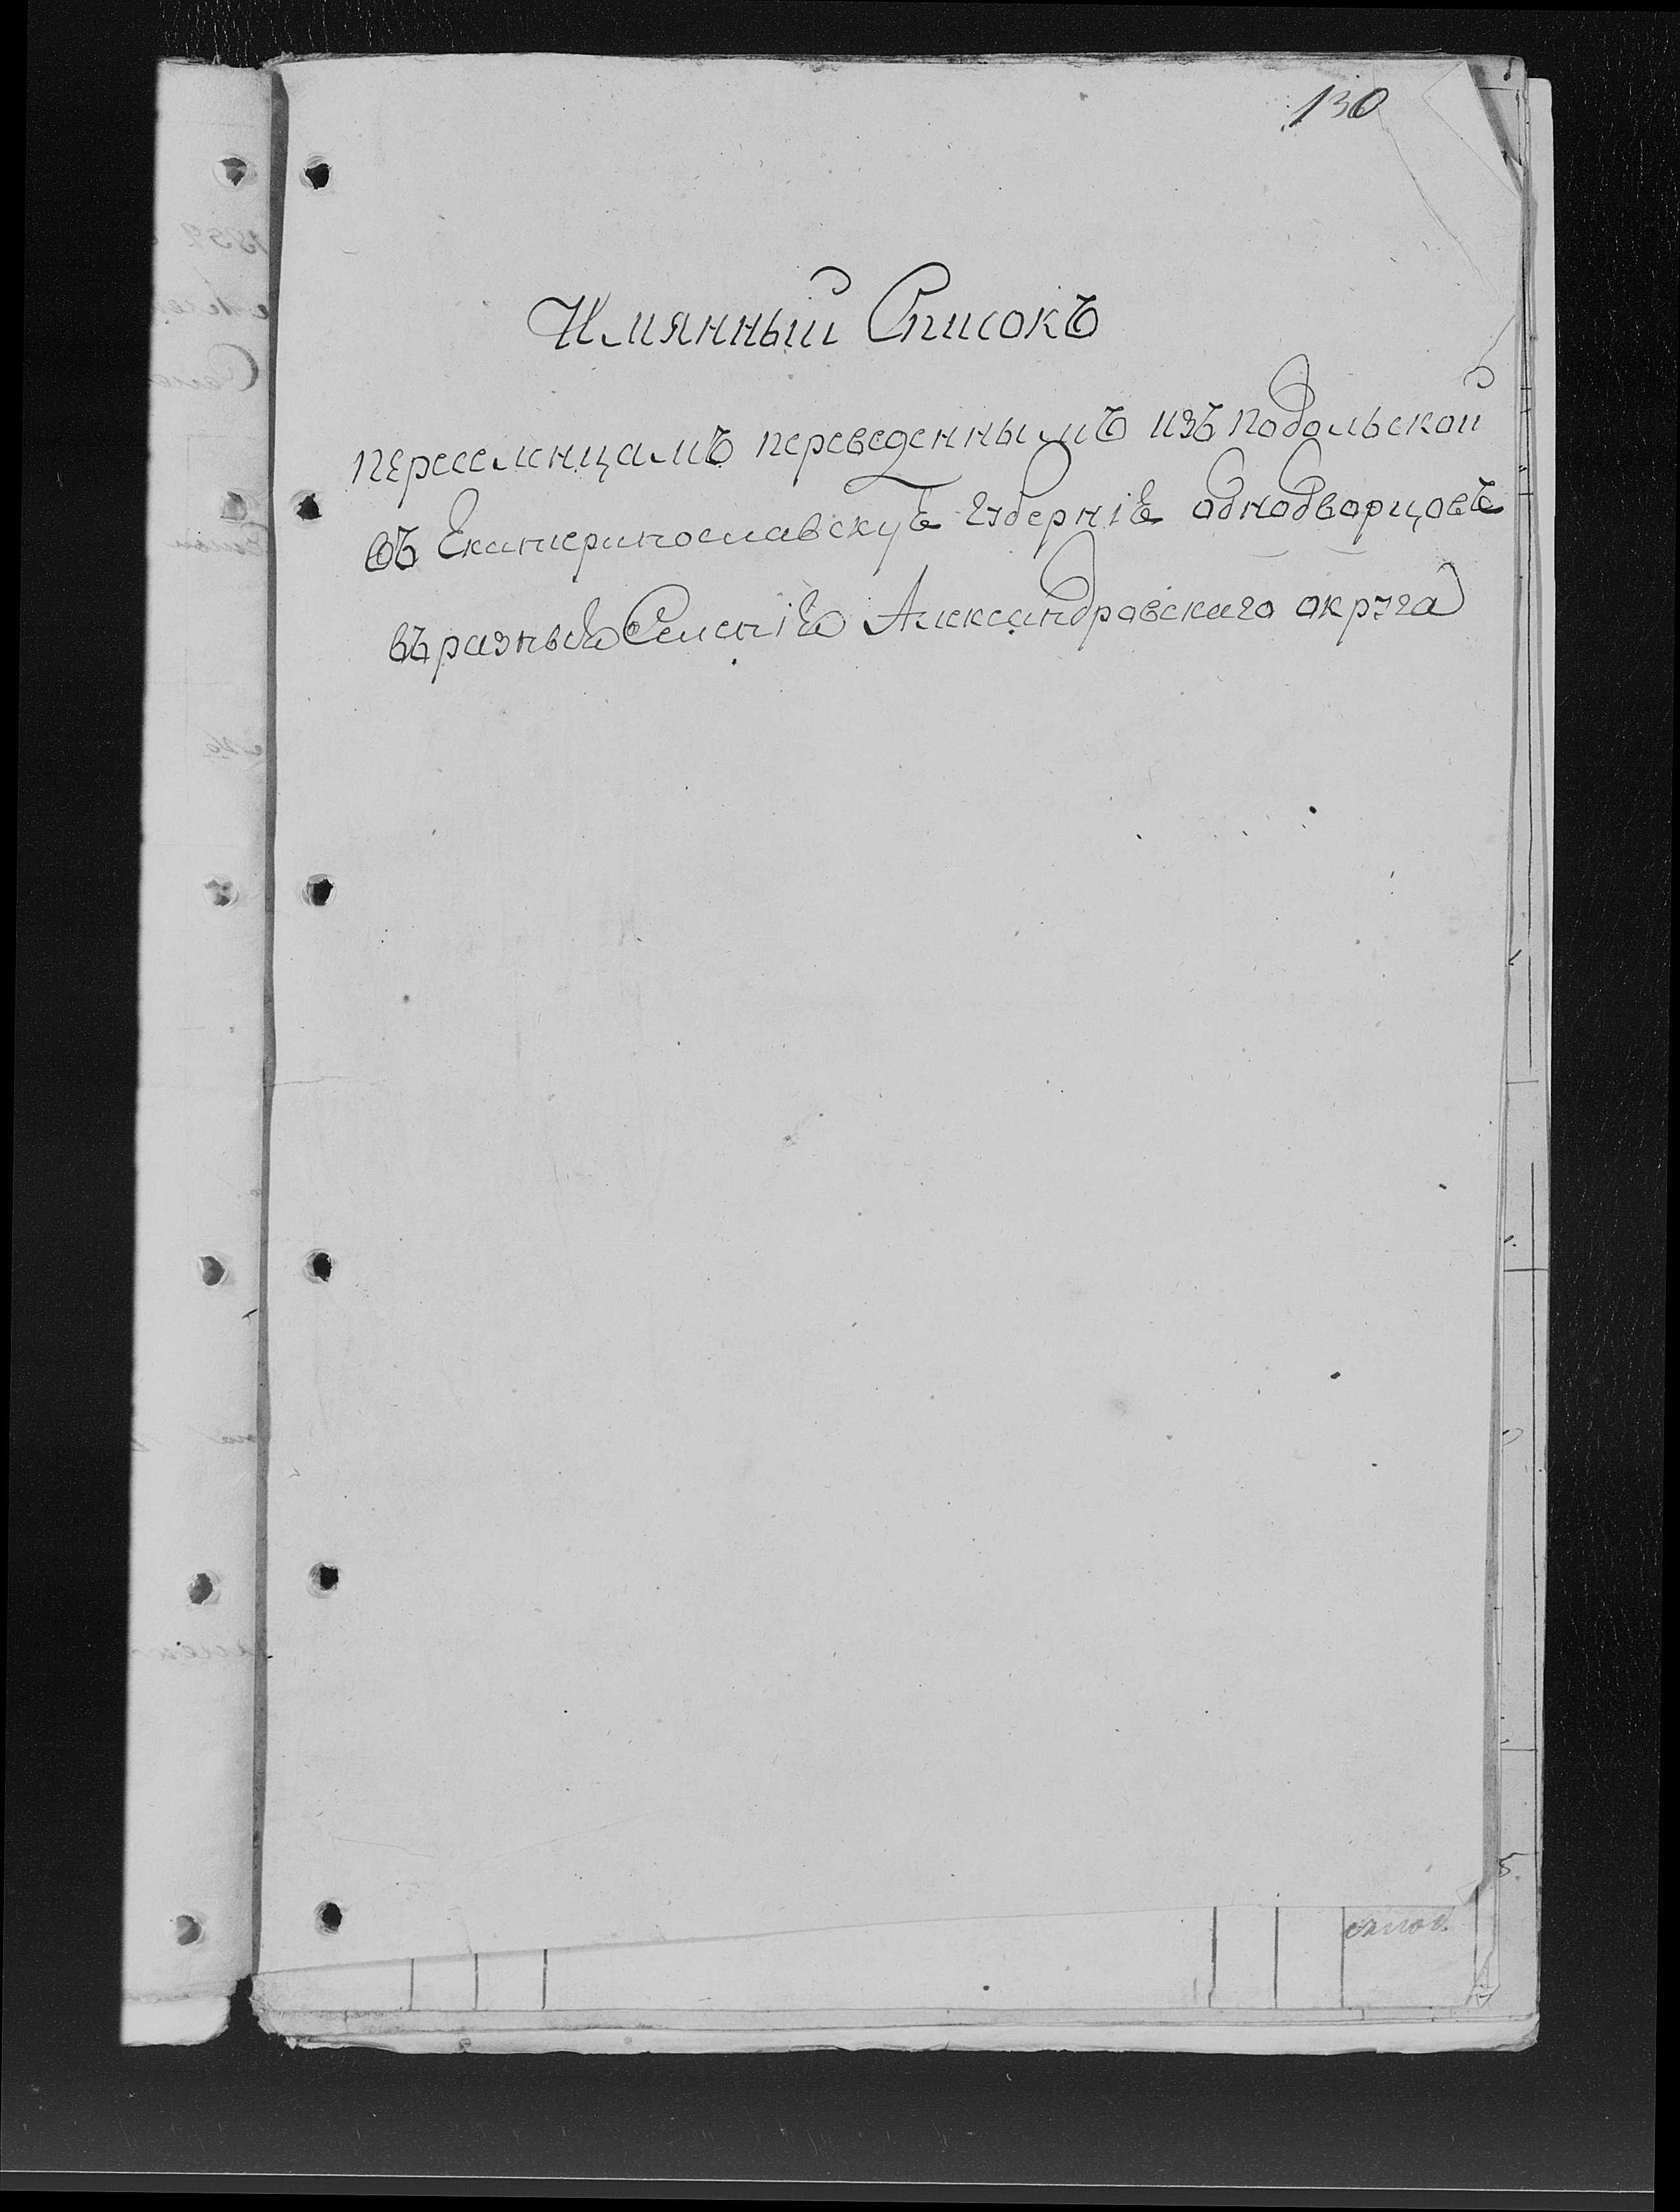 130
Имянный Списокъ
переселенцамъ переведеннымъ изъ Подольской
въ Екатеринославскую Губернію однодворцовъ
въ разныя Селенія Александровскаго округа